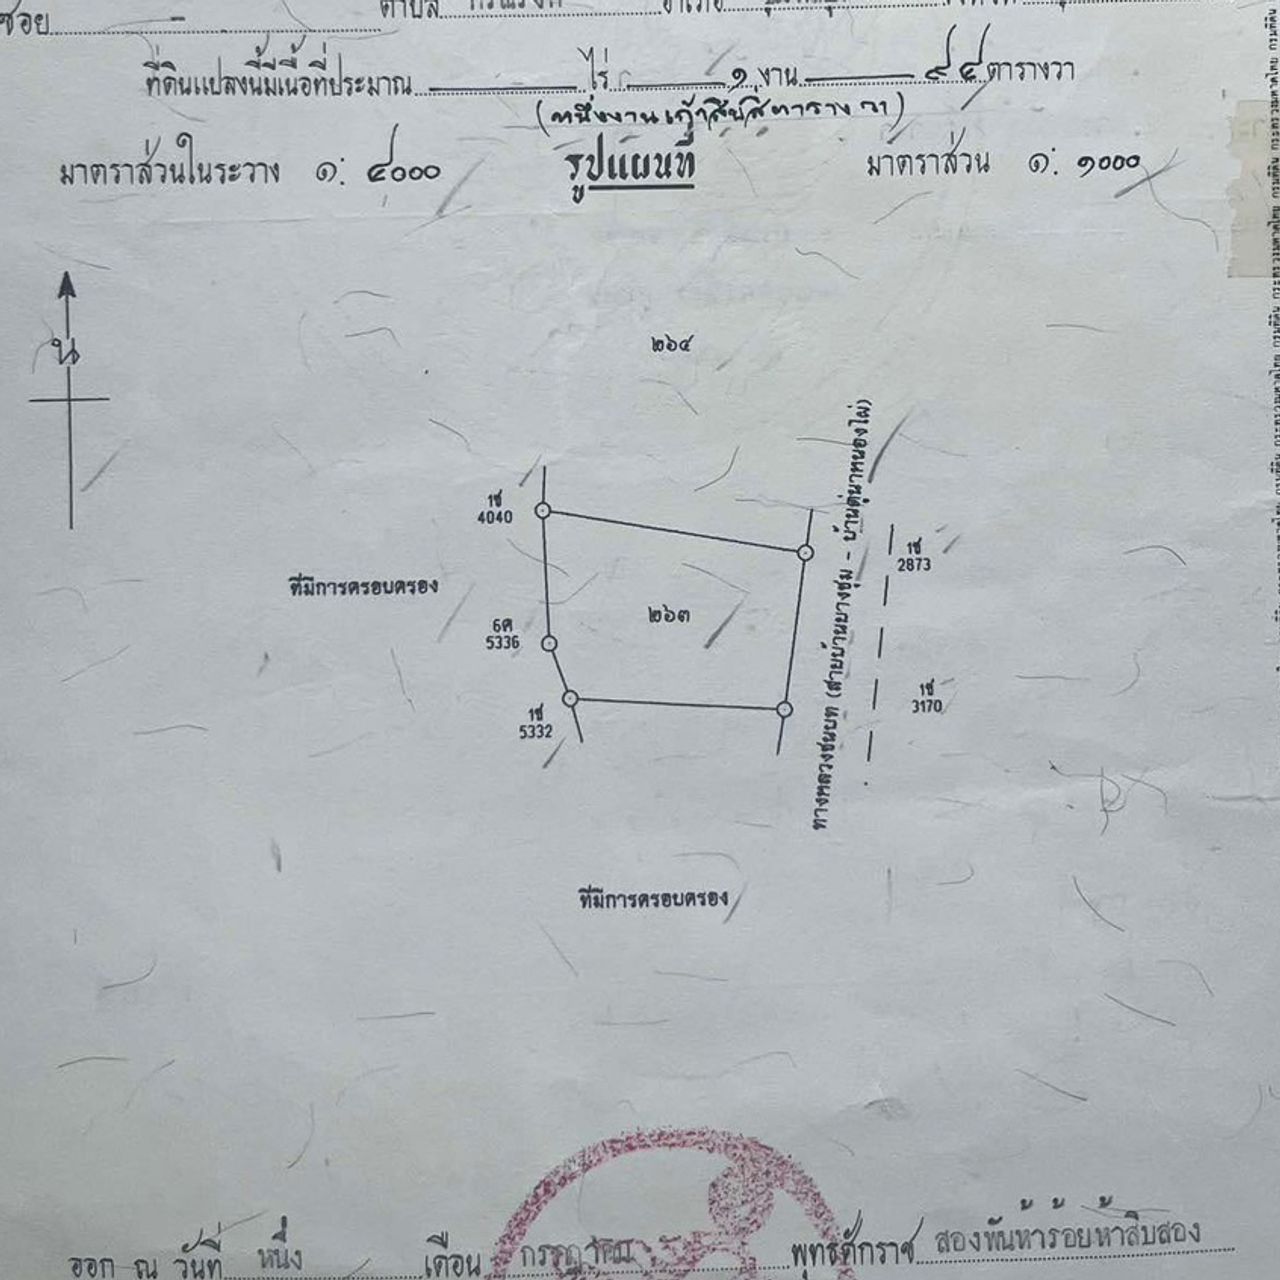 ซอย -
ที่ดินแปลงนี้มีเนื้อที่ประมาณ ไร่ ๑ งาน ๙๔ ตารางวา
(หนึ่งงานเก้าสิบสี่ตารางวา)
มาตราส่วนในระวาง ๑: ๔๐๐๐ รูปแผนที่ มาตราส่วน ๑: ๑๐๐๐
น
๒๖๔
1ช
4040
1ช
2873
ที่มีการครอบครอง
๒๖๓
6ศ
5336
1ช
3170
1ช
5332
ทางหลวงชนบท
ที่มีการครอบครอง
ออก ณ วันที่ หนึ่ง เดือน กรกฎาคม พุทธศักราช สองพันห้าร้อยห้าสิบสอง